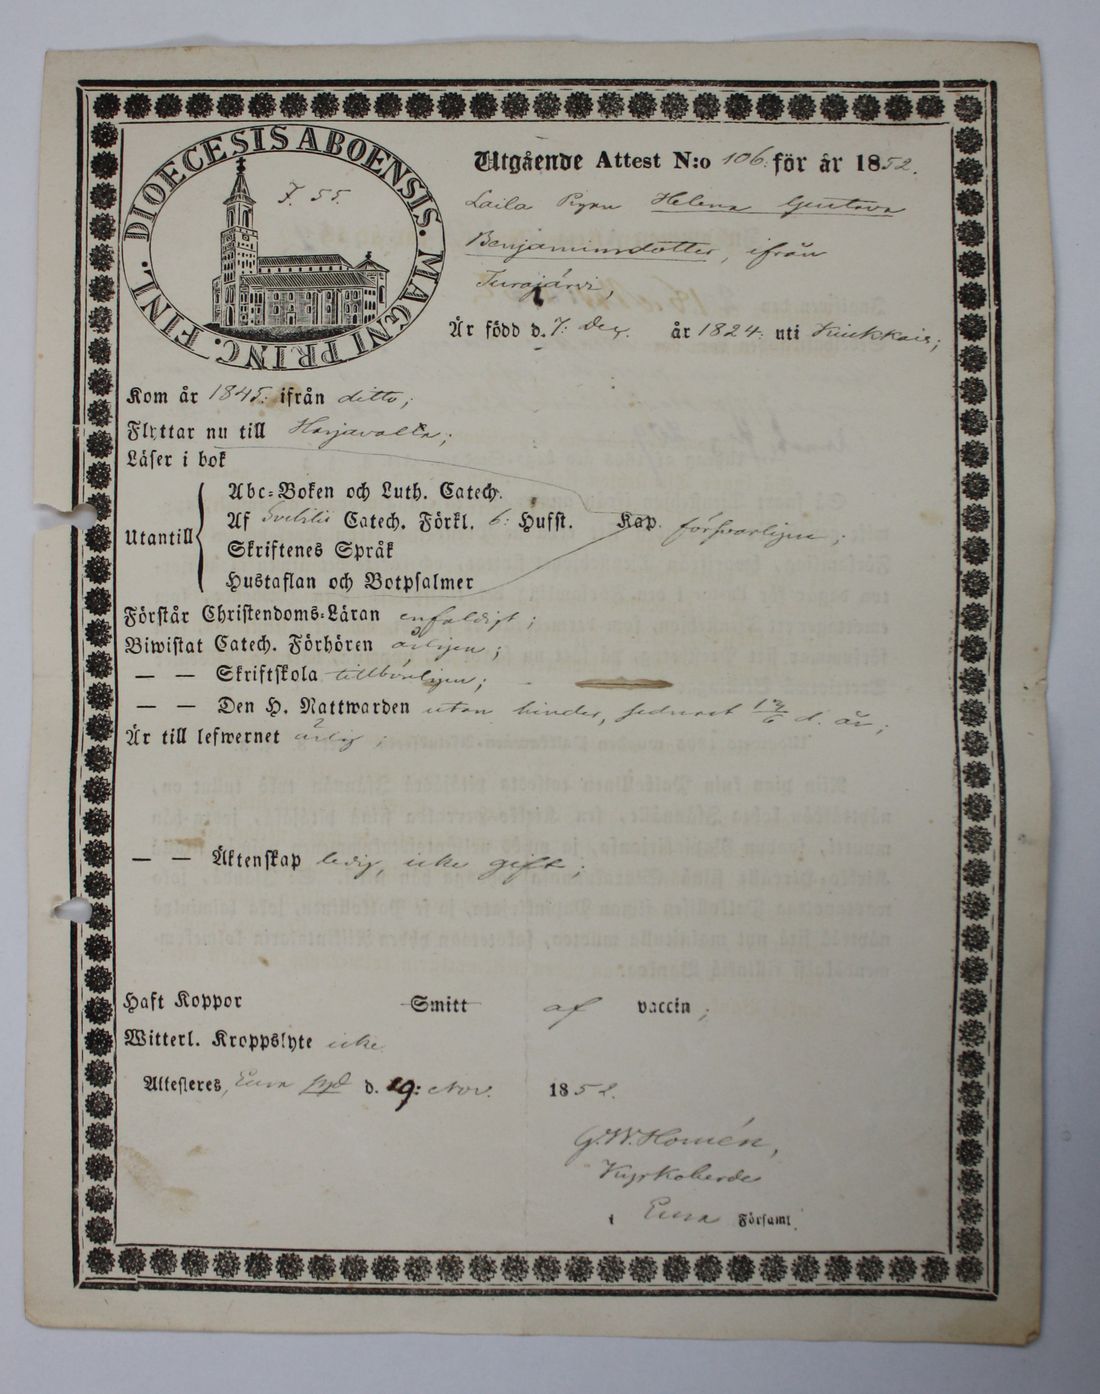 DIOECESIS ABOENSIS. MAGNI PRINC. FINL.
Utgående Attest N:o 106. för år 1852.
Helena Gustava
Benjaminsdotter, ifrån
Turajärvi,
Är född d. 7: Dec. år 1824: uti Kiukkais;
Kom år 1845: ifrån ditto;
Flyttar nu till Harjavalta;
Läser i bok
Abc-Boken och Luth. Catech.
Utantill Af Svebilii Catech. Förkl. 6: Hufst. Kap. försvarligen;
Skriftenes Språk
Hustaflan och Botpsalmer
Förstår Christendoms-Läran enfaldigt;
Biwistat Catech. Förhören årligen;
— — Skriftskola tillbörligen;
— — Den H. Nattwarden utan hinder, sednast d. år;
Är till lefwernet ärlig;
— — Äktenskap ledig, icke gift;
Haft Koppor Smitt af vaccin;
Witterl. Kroppslyte icke
Attesteres, Eura d. 19: Nov. 1852.
G.W. Homén,
Kyrkoherde
i Eura Församl.